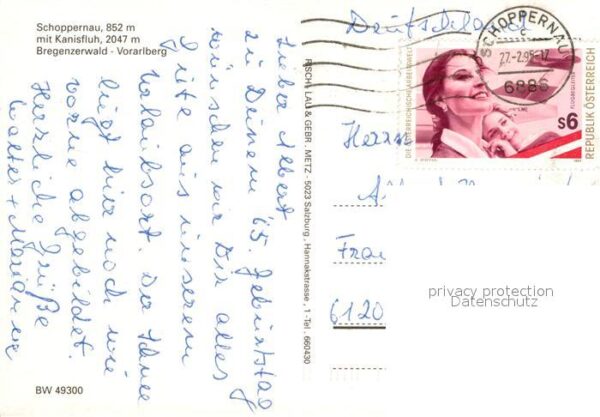 Schoppernau, 852 m
mit Kanisfluh, 2047 m
Bregenzerwald - Vorarlberg
Lieber Albert
zu Deinem 65. Geburtstag
wünschen wir Dir alles
Gute aus unserem
Urlaubsort. Der Schnee
liegt hier noch wie
vorne abgebildet.
Herzliche Grüße
Walter +
BW 49300
RISCH-LAU & GEBR. METZ · 5023 Salzburg, Hannakstrasse, 1 · Tel. 660430
Deutschland
SCHOPPERNAU
c
27.-2.95-17
6886
DIE ÖSTERREICHISCHE ARBEITSWELT
S6
REPUBLIK ÖSTERREICH
Herrn
Frau
6120
privacy protection
Datenschutz